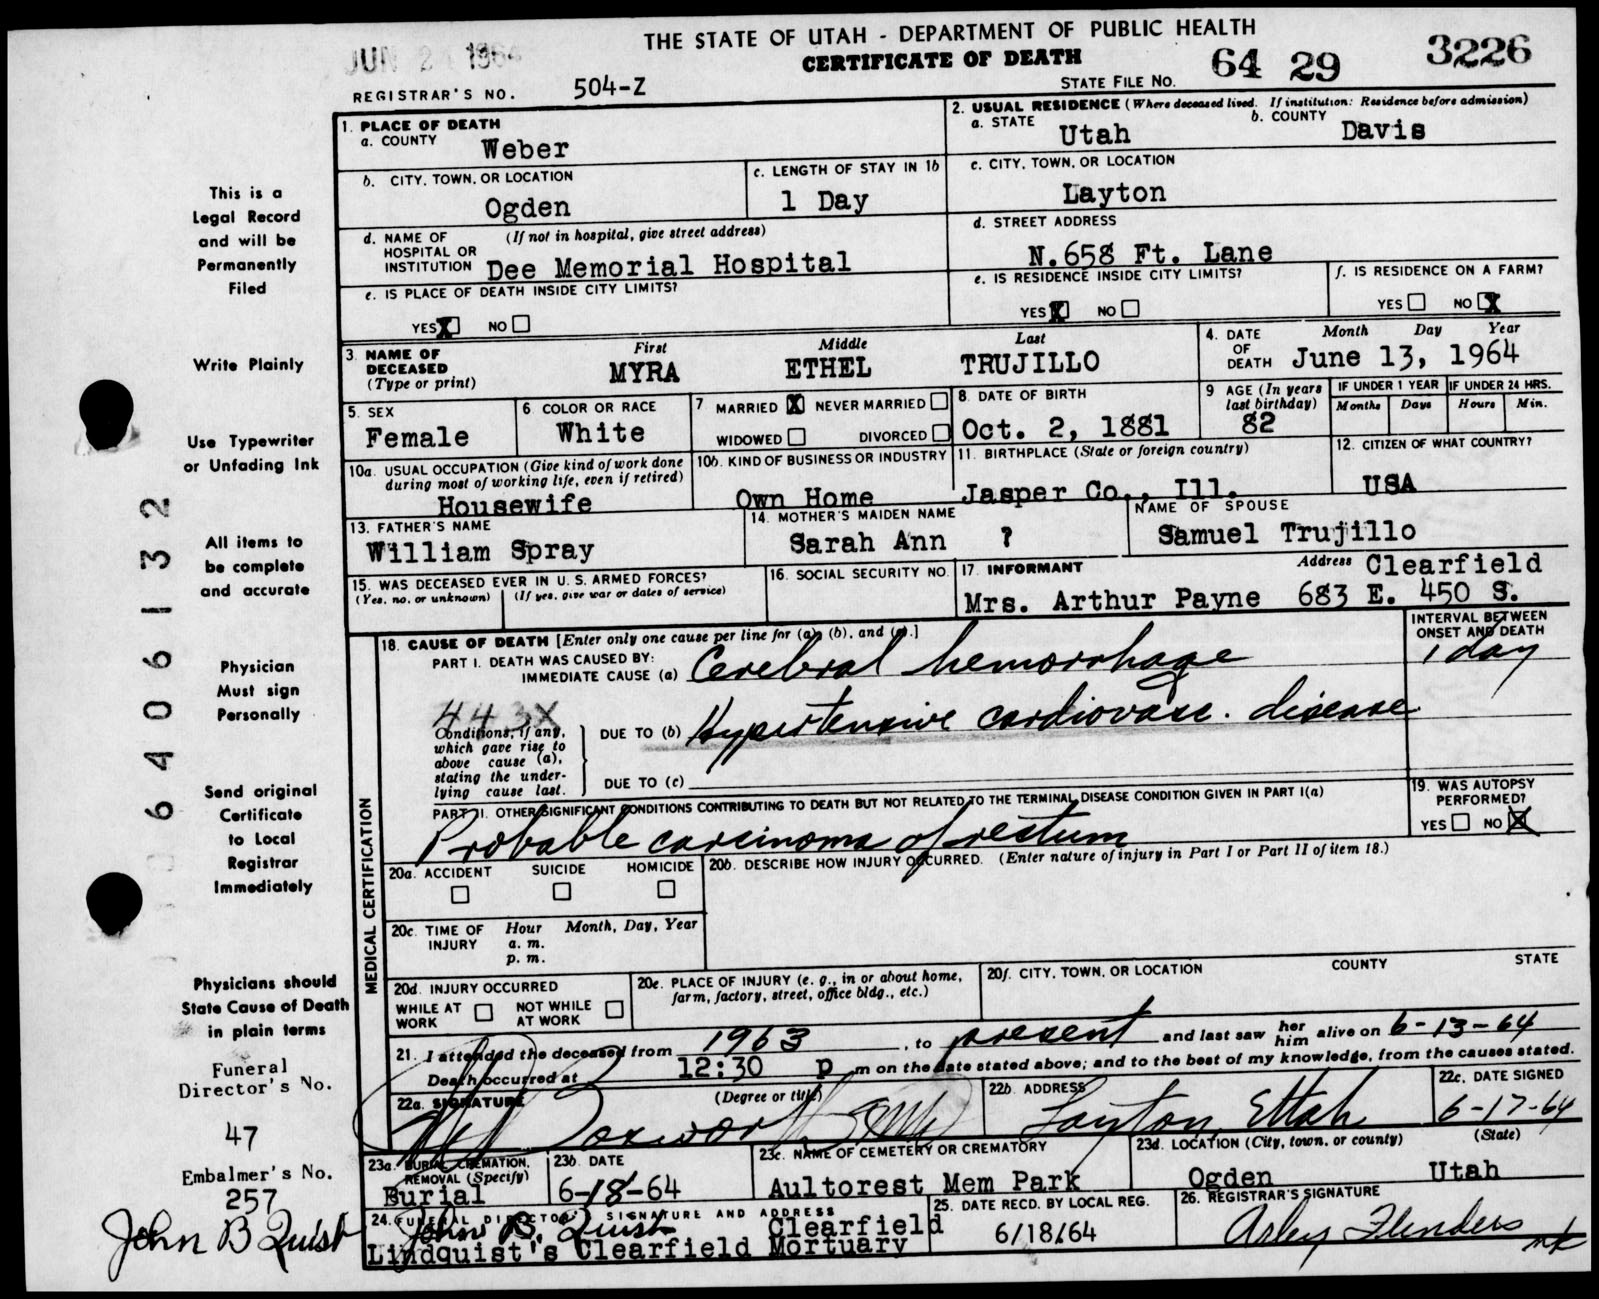 THE STATE OF UTAH - DEPARTMENT OF PUBLIC HEALTH
CERTIFICATE OF DEATH
JUN 2 1964
REGISTRAR'S NO. 504-Z
STATE FILE NO. 64 29 3226
This is a
Legal Record
and will be
Permanently
Filed
Write Plainly
Use Typewriter
or Unfading Ink
All items to
be complete
and accurate
Physician
Must sign
Personally
Send original
Certificate
to Local
Registrar
Immediately
Physicians should
State Cause of Death
in plain terms
Funeral
Director's No.
47
Embalmer's No.
257
John B Quist
6406132
1. PLACE OF DEATH
a. COUNTY Weber
b. CITY, TOWN, OR LOCATION
Ogden
c. LENGTH OF STAY IN 1b
1 Day
d. NAME OF HOSPITAL OR INSTITUTION (If not in hospital, give street address)
Dee Memorial Hospital
e. IS PLACE OF DEATH INSIDE CITY LIMITS?
YES X NO
2. USUAL RESIDENCE (Where deceased lived. If institution: Residence before admission)
a. STATE Utah b. COUNTY Davis
c. CITY, TOWN, OR LOCATION
Layton
d. STREET ADDRESS
N.658 Ft. Lane
e. IS RESIDENCE INSIDE CITY LIMITS?
YES X NO
f. IS RESIDENCE ON A FARM?
YES NO X
3. NAME OF DECEASED (Type or print)
First Middle Last
MYRA ETHEL TRUJILLO
4. DATE OF DEATH Month Day Year
June 13, 1964
5. SEX
Female
6 COLOR OR RACE
White
7 MARRIED X NEVER MARRIED
WIDOWED DIVORCED
8. DATE OF BIRTH
Oct. 2, 1881
9 AGE (In years last birthday)
82
IF UNDER 1 YEAR IF UNDER 24 HRS.
Months Days Hours Min.
10a. USUAL OCCUPATION (Give kind of work done during most of working life, even if retired)
Housewife
10b. KIND OF BUSINESS OR INDUSTRY
Own Home
11. BIRTHPLACE (State or foreign country)
Jasper Co., Ill.
12. CITIZEN OF WHAT COUNTRY?
USA
13. FATHER'S NAME
William Spray
14. MOTHER'S MAIDEN NAME
Sarah Ann ?
NAME OF SPOUSE
Samuel Trujillo
15. WAS DECEASED EVER IN U. S. ARMED FORCES?
(Yes, no, or unknown) (If yes, give war or dates of service)
16. SOCIAL SECURITY NO.
17. INFORMANT Address Clearfield
Mrs. Arthur Payne 683 E. 450 S.
MEDICAL CERTIFICATION
18. CAUSE OF DEATH [Enter only one cause per line for (a), (b), and (c).]
INTERVAL BETWEEN ONSET AND DEATH
PART I. DEATH WAS CAUSED BY:
IMMEDIATE CAUSE (a) Cerebral hemorrhage 1 day
443X
Conditions, if any, which gave rise to above cause (a), stating the underlying cause last.
DUE TO (b) Hypertensive cardiovasc. disease
DUE TO (c)
PART II. OTHER SIGNIFICANT CONDITIONS CONTRIBUTING TO DEATH BUT NOT RELATED TO THE TERMINAL DISEASE CONDITION GIVEN IN PART I(a)
Probable carcinoma of rectum
19. WAS AUTOPSY PERFORMED?
YES NO X
20a. ACCIDENT SUICIDE HOMICIDE
20b. DESCRIBE HOW INJURY OCCURRED. (Enter nature of injury in Part I or Part II of item 18.)
20c. TIME OF INJURY Hour Month, Day, Year
a. m.
p. m.
20d. INJURY OCCURRED
WHILE AT WORK NOT WHILE AT WORK
20e. PLACE OF INJURY (e. g., in or about home, farm, factory, street, office bldg., etc.)
20f. CITY, TOWN, OR LOCATION COUNTY STATE
21. I attended the deceased from 1963, to present and last saw her him alive on 6-13-64
Death occurred at 12:30 p m on the date stated above; and to the best of my knowledge, from the causes stated.
22a. SIGNATURE (Degree or title)
22b. ADDRESS
Layton, Utah
22c. DATE SIGNED
6-17-64
23a. BURIAL, CREMATION, REMOVAL (Specify)
Burial
23b. DATE
6-18-64
23c. NAME OF CEMETERY OR CREMATORY
Aultorest Mem Park
23d. LOCATION (City, town, or county) (State)
Ogden Utah
24. FUNERAL DIRECTOR'S SIGNATURE AND ADDRESS
John B. Quist Clearfield
Lindquist's Clearfield Mortuary
25. DATE RECD. BY LOCAL REG.
6/18/64
26. REGISTRAR'S SIGNATURE
Arley Flinders
mk